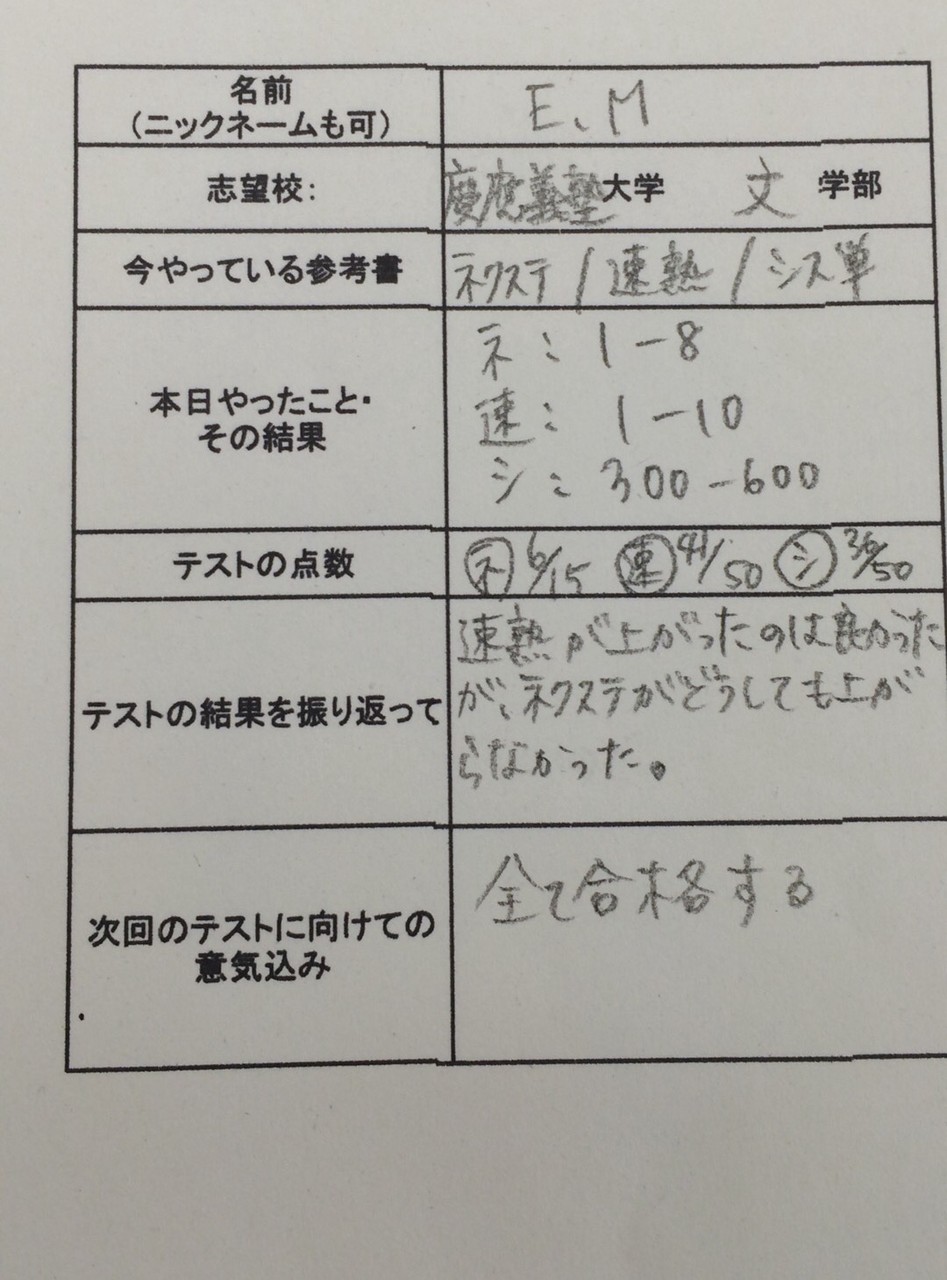 名前
(ニックネームも可)
E、M
志望校:
慶應義塾大学 文 学部
今やっている参考書
ネクステ / 速熟 / シス単
本日やったこと・
その結果
ネ: 1-8
速: 1-10
シ: 300-600
テストの点数
ネ 6/15 速 41/50 シ /50
テストの結果を振り返って
速熟が上がったのは良かった
が、ネクステがどうしても上が
らなかった。
次回のテストに向けての
意気込み
全て合格する